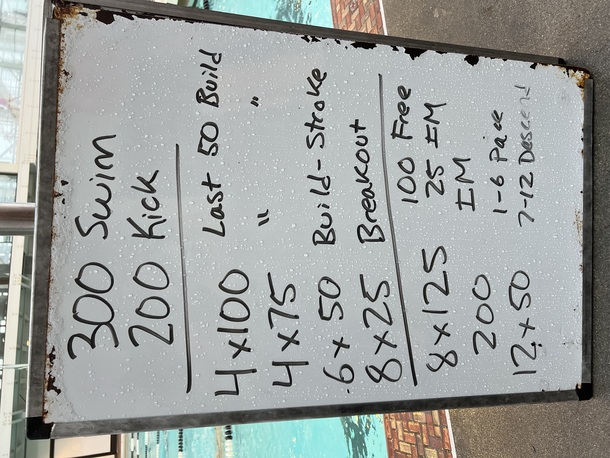 300 Swim
200 Kick
4x100 Last 50 Build
4x75 " "
6x50 Build-Stroke
8x25 Breakout
8x125 100 Free
25 IM
200 IM
12x50 1-6 Pace
7-12 Descend